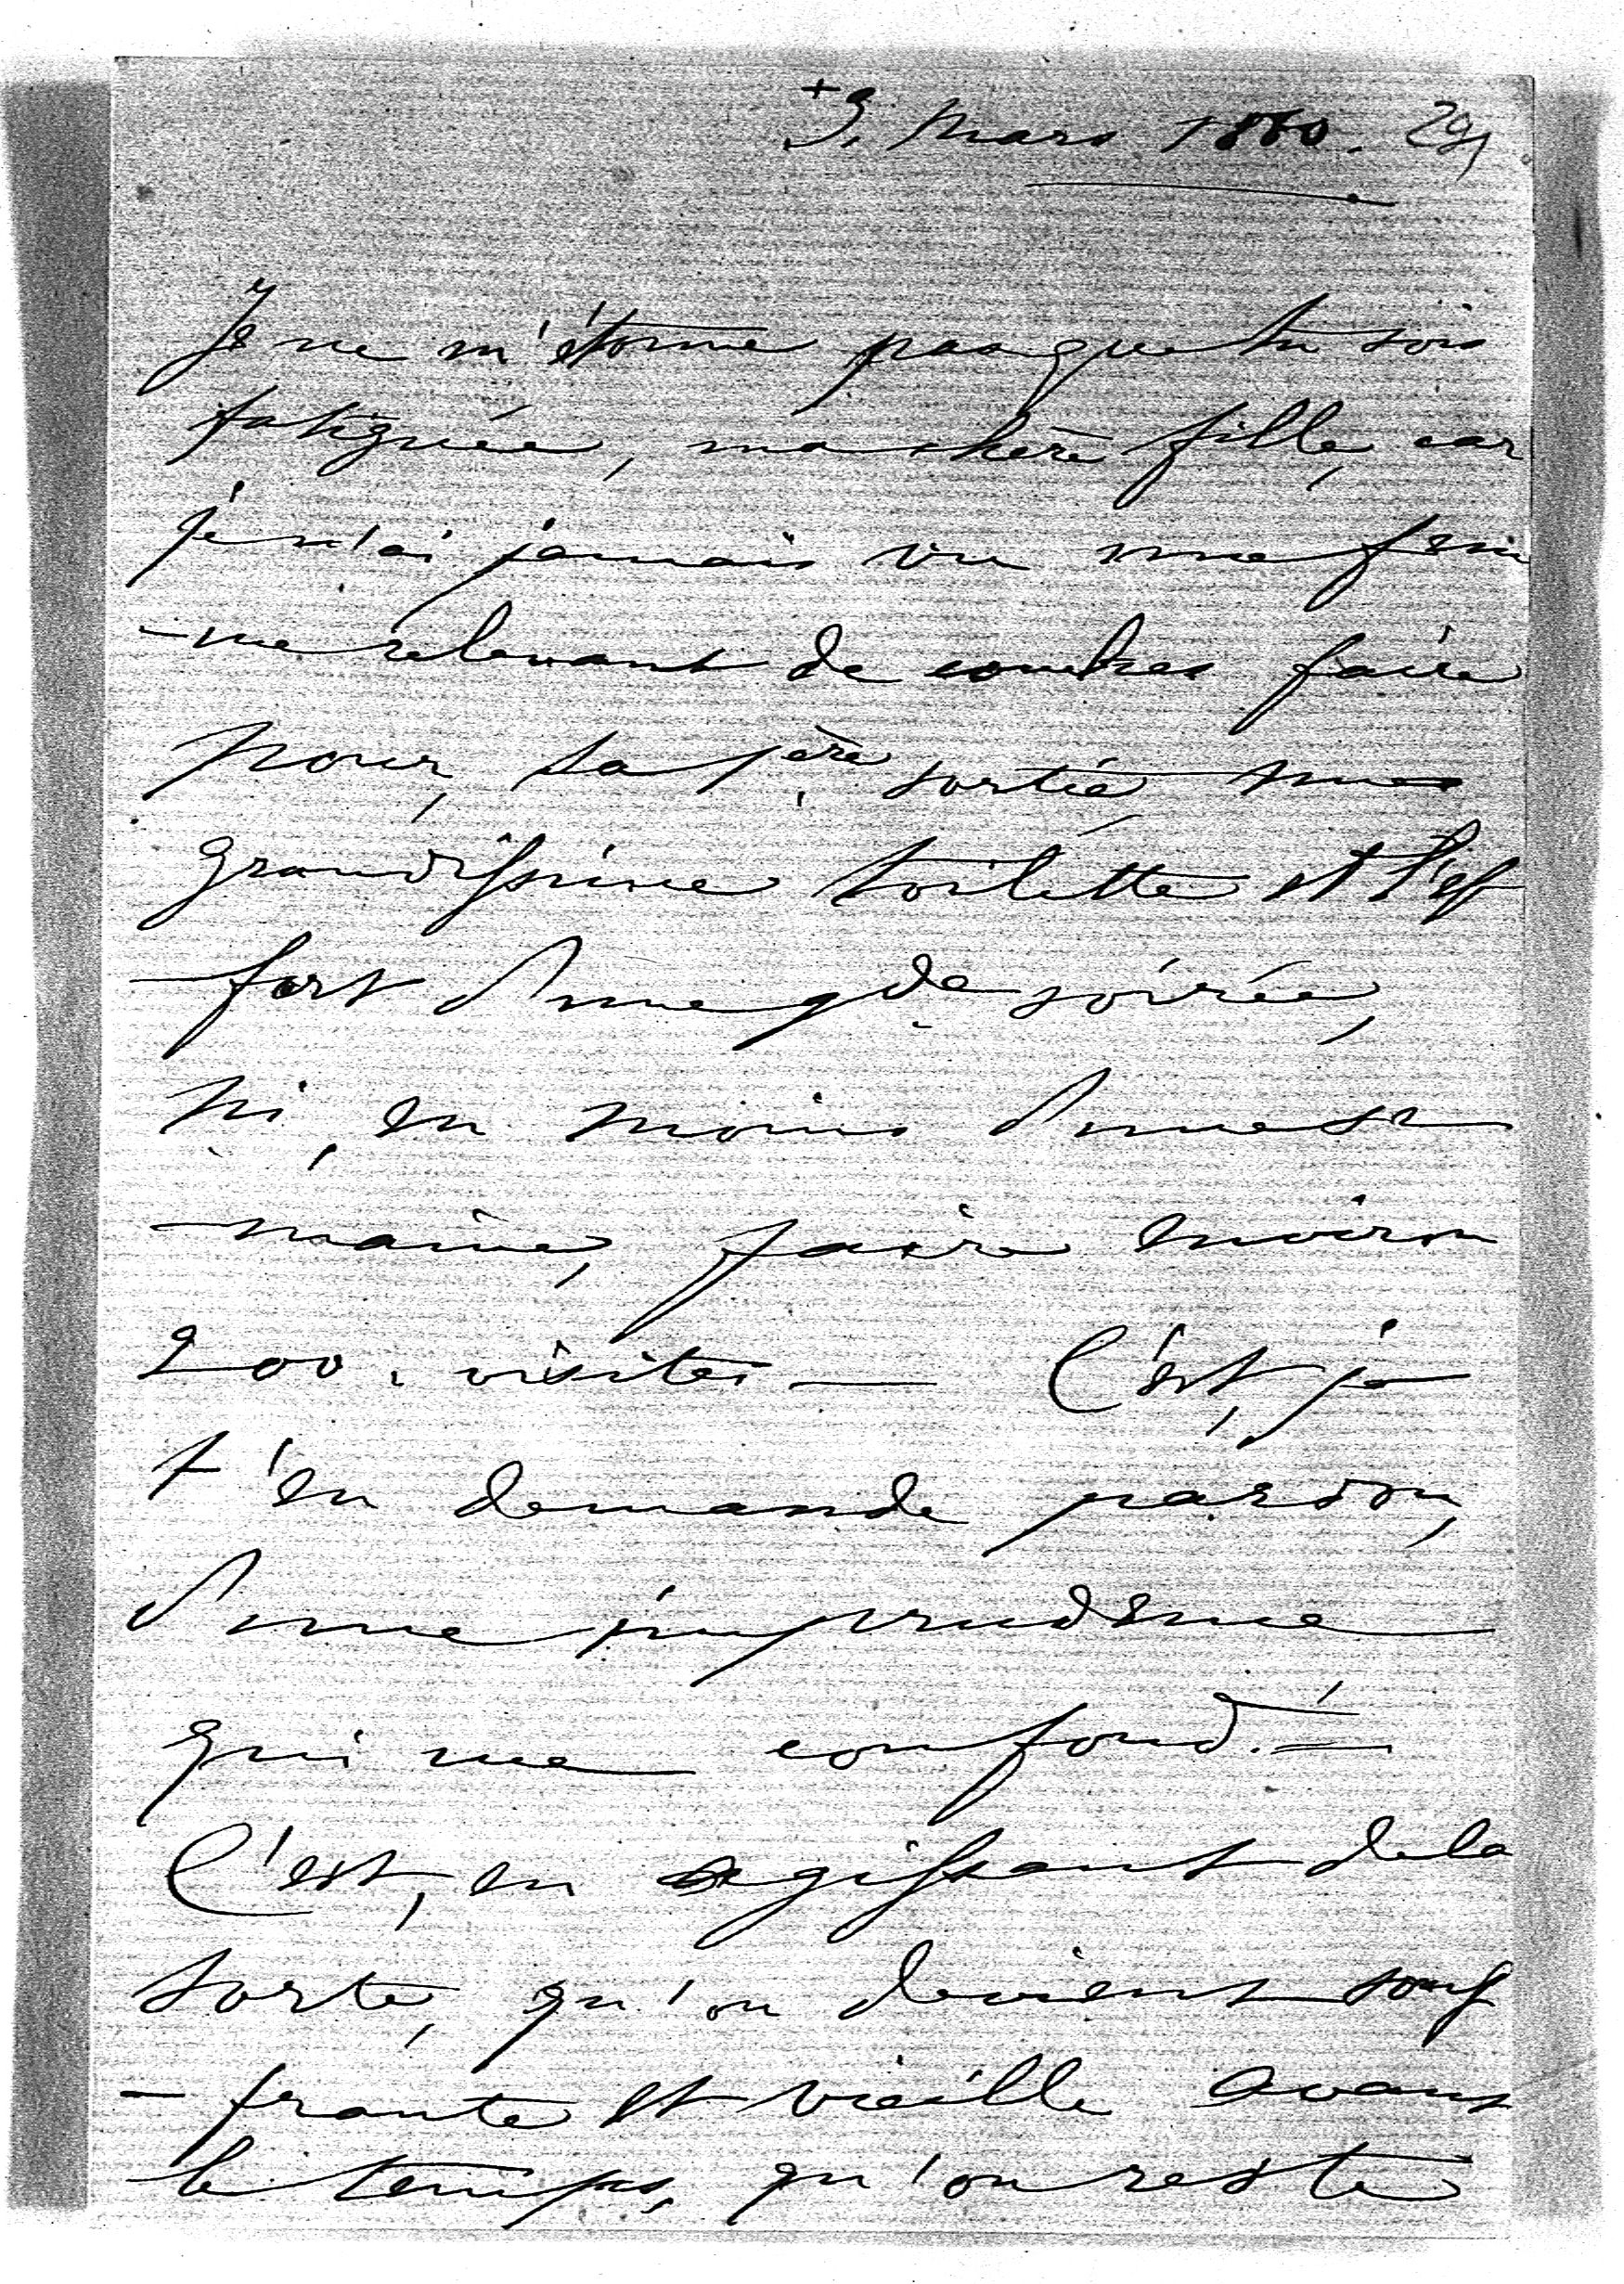 + 3. mars 1860. 29,
Je ne m'étonne pas que tu sois
fatiguée, ma chère fille, car
je n'ai jamais vu une fem
-me relevant de couches faire
pour sa 1ère sortie une
grandissime toilette et l'ef
-fort d'une gde soirée,
ni, en moins d'une se
-maine, faire environ
200. visites — C'est, je
t'en demande pardon,
d'une imprudence
qui me confond. —
C'est, en agissant de la
sorte, qu'on devient souf
-frante et vieille avant
le temps, qu'on reste